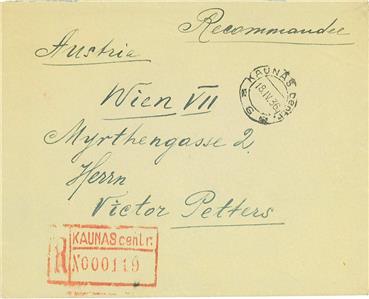 Recommandee
Austria
KAUNAS centr.
18.IV.36
Wien VII
Myrthengasse 2.
Herrn
Victor Petters
R
KAUNAS centr.
N000119